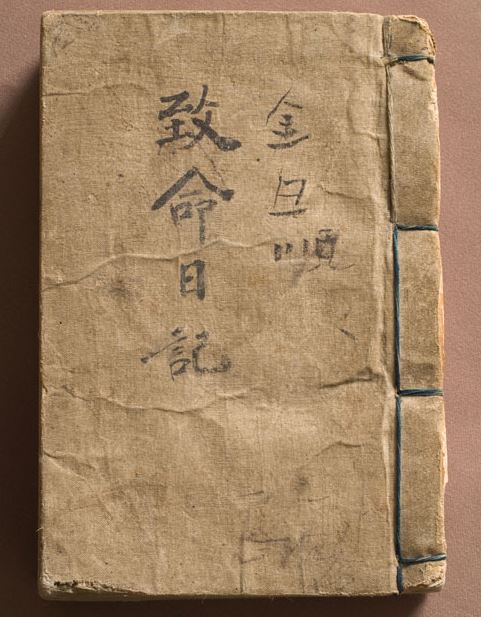 金旦順
致命日記